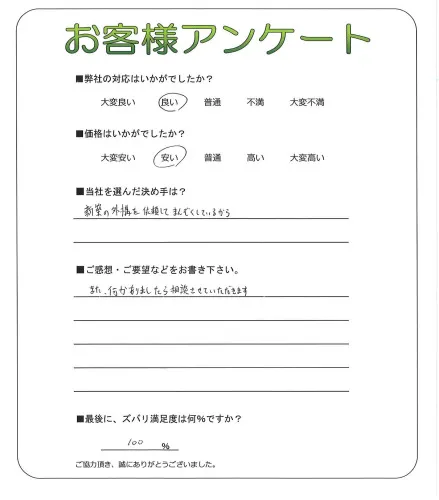 お客様アンケート
■弊社の対応はいかがでしたか？
大変良い 良い 普通 不満 大変不満
■価格はいかがでしたか？
大変安い 安い 普通 高い 大変高い
■当社を選んだ決め手は？
新築の外構を依頼してまんぞくしているから
■ご感想・ご要望などをお書き下さい。
また、何かありましたら相談させていただきます
■最後に、ズバリ満足度は何％ですか？
100 ％
ご協力頂き、誠にありがとうございました。